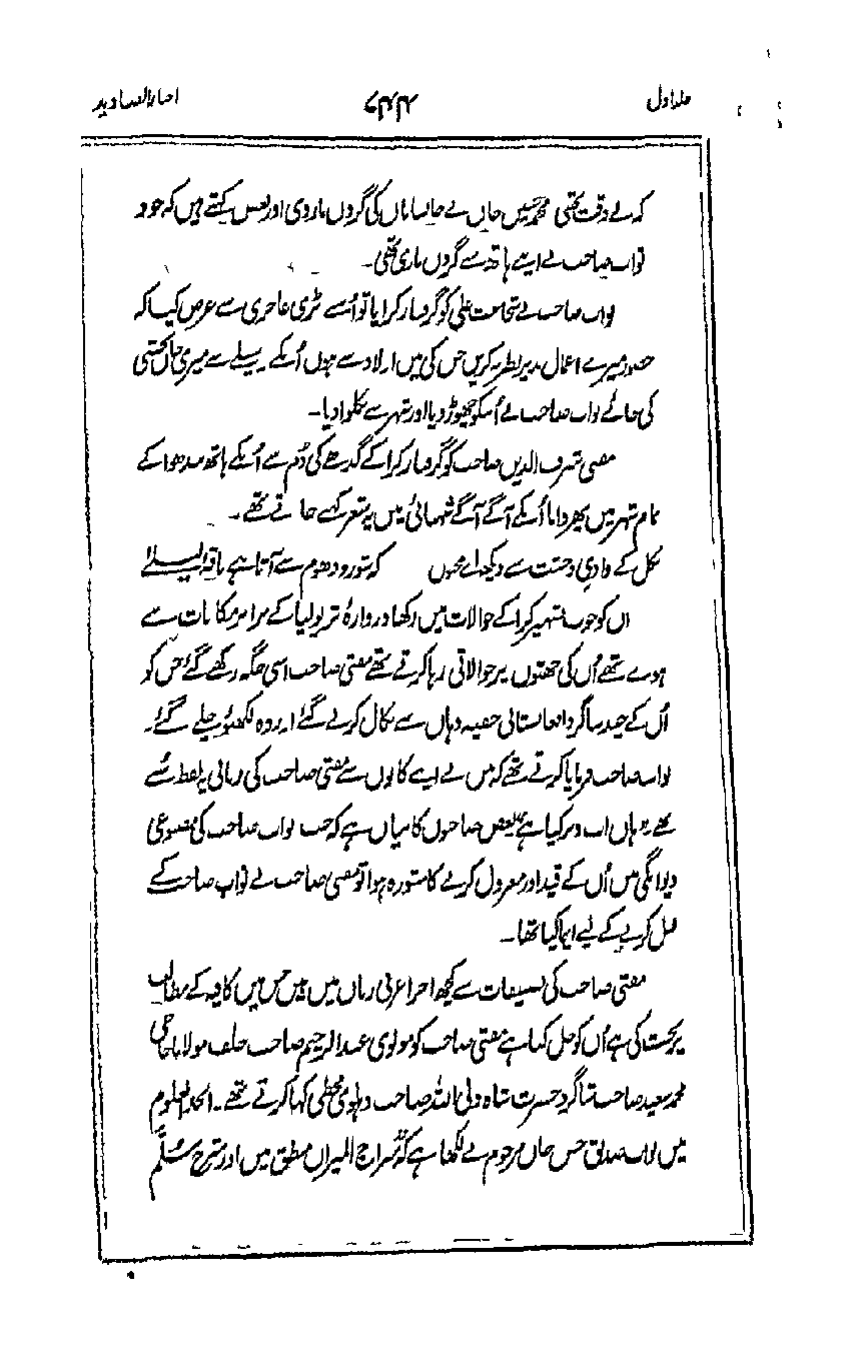 جلد اول ۴۴۶ اخبار الصنادید
کے وقت تھی محمد حسین خاں نے خانساماں کی گردن مار دی اور بعض کہتے ہیں کہ خود
نواب صاحب نے اپنے ہاتھ سے گردن ماری تھی۔
نواب صاحب نے شجاعت علی کو گرفتار کرایا تو اُسنے بڑی عاجزی سے عرض کیا کہ
حضور میرے اعمال پر نظر نہ کریں جس کی میں اولاد سے ہوں اُسکے وسیلے سے میری جاں بخشی
کی جائے نواب صاحب نے اُسکو چھوڑ دیا اور شہر سے نکلوا دیا۔
مفتی شرف الدین صاحب کو گرفتار کرا کے گدھے کی دُم سے اُنکے ہاتھ بندھوا کے
تمام شہر میں پھروایا اُنکے آگے آگے شہنائی میں یہ شعر کہے جاتے تھے۔
نکل کے وادیِ وحشت سے دیکھ اے مجنوں کہ زور و دھوم سے آتا ہے ناقۂ لیلےٰ
اں کو خوب تشہیر کرا کے حوالات میں رکھا دروازۂ ترپولیا کے برابر مکانات سے
ہوے تھے اُن کی چھتوں پر حوالاتی رہا کرتے تھے مفتی صاحب اسی جگہ رکھے گئے جن کو
اُن کے چند شاگرد افغانستانی خفیہ وہاں سے نکال کر لے گئے اور وہ لکھنؤ چلے گئے۔
نواب صاحب فرمایا کرتے تھے کہ میں نے اپنے کانوں سے مفتی صاحب کی زبانی یہ لفظ سُنے
تھے ہاں اب دیر کیا ہے بعض صاحبوں کا بیان ہے کہ جب نواب صاحب کی مصنوعی
دیوانگی میں اُن کے قید اور معزول کرنے کا مشورہ ہوا تو مفتی صاحب نے نواب صاحب کے
قتل کرنے کے لیے ایما کیا تھا۔
مفتی صاحب کی تصنیفات سے کچھ اجزا عربی زبان میں ہیں جس میں کافیہ کے مطالب
پر بحث کی ہے اُن کو حل کیا ہے مفتی صاحب کو مولوی عبدالرحیم صاحب خلف مولانا حاجی
محمد سعید صاحب شاگرد حضرت شاہ ولی اللہ صاحب دہلوی مخطی کہا کرتے تھے۔ ابجد العلوم
میں نواب صدیق حسن خاں مرحوم نے لکھا ہے کہ سراج المیزان منطق میں اور شرح سُلَّم